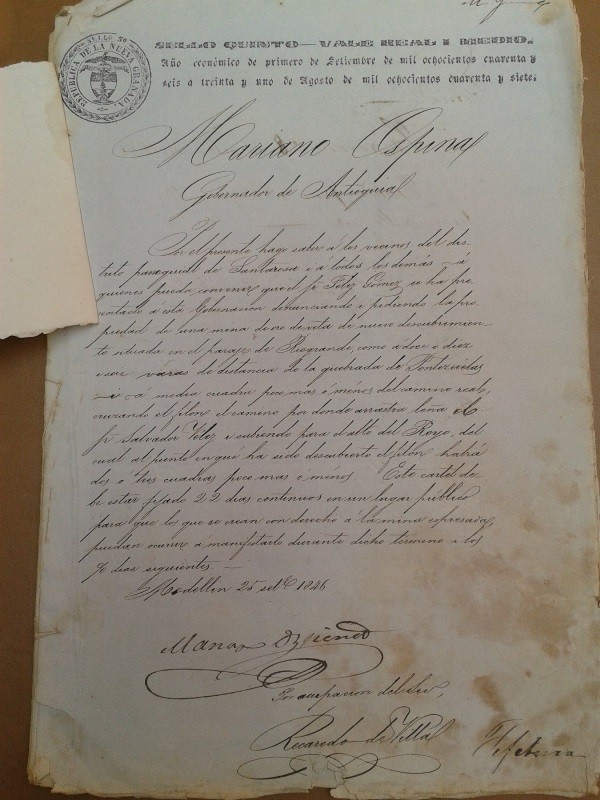 SELLO 5o
REPUBLICA DE LA NUEVA GRANADA.
SELLO QUINTO—VALE REAL I MEDIO.
Año económico de primero de Setiembre de mil ochocientos cuarenta y
seis a treinta y uno de Agosto de mil ochocientos cuarenta y siete.
Mariano Ospina
Gobernador de Antioquia
Por el presente hago saber a los vecinos del dis-
trito parroquial de Santarosa i á todos los demás á
quienes pueda convenir que el Sr Feliz Gomez se ha pre-
sentado a esta Gobernacion denunciando i pidiendo la pro-
piedad de una mina de oro de veta de nuevo descubrimien-
to situada en el paraje de Riogrande, como a doce o diez
varas de distancia de la quebrada de
i á media cuadra poco mas o ménos del camino real,
cruzando el filon el camino por donde arrastra leña el
Sr Salvador Velez i subiendo para el alto del Royo, del
cual al punto en que ha sido descubierto el filón habrá
dos o tres cuadras poco mas o ménos. Este cartel de-
be estar fijado 22 dias continuos en un lugar publico
para que los que se crean con derecho á la mina espresada,
puedan ocurrir a manifestarlo durante dicho termino i los
90 dias siguientes. —
Medellin 25 setbe 1846
Mariano Ospina
Por ocupacion del Srio,
Recaredo de Villa